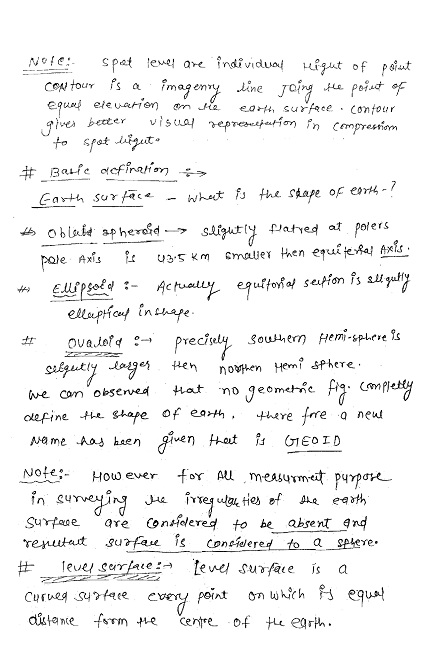 Note:- Spot level are individual hight of point
contour is a imagenry line Joing the point of
equal elevation on the earth surface. contour
gives better visual representation in compression
to spot hight.
# Basic defination :->
Earth surface - what is the shape of earth-?
# Oblate spheroid -> slightly flatred at polers
pole Axis is 43.5 km smaller then equiterial Axis.
# Ellipsoid :- Actually equitorial section is slightly
elleptical in shape.
# Ovaloid :-> precisely southern Hemi-sphere is
slightly larger then northen Hemi sphere.
we can observed that no geometric fig. completly
define the shape of earth. there fore a new
Name has been given that is GEOID
Note:- However for All measurment purpose
in surveying the irregularties of the earth
Surface are considered to be absent and
resultant surface is considered to a sphere.
# level surface:-> Level surface is a
curved surface every point on which is equal
distance form the centre of the earth.